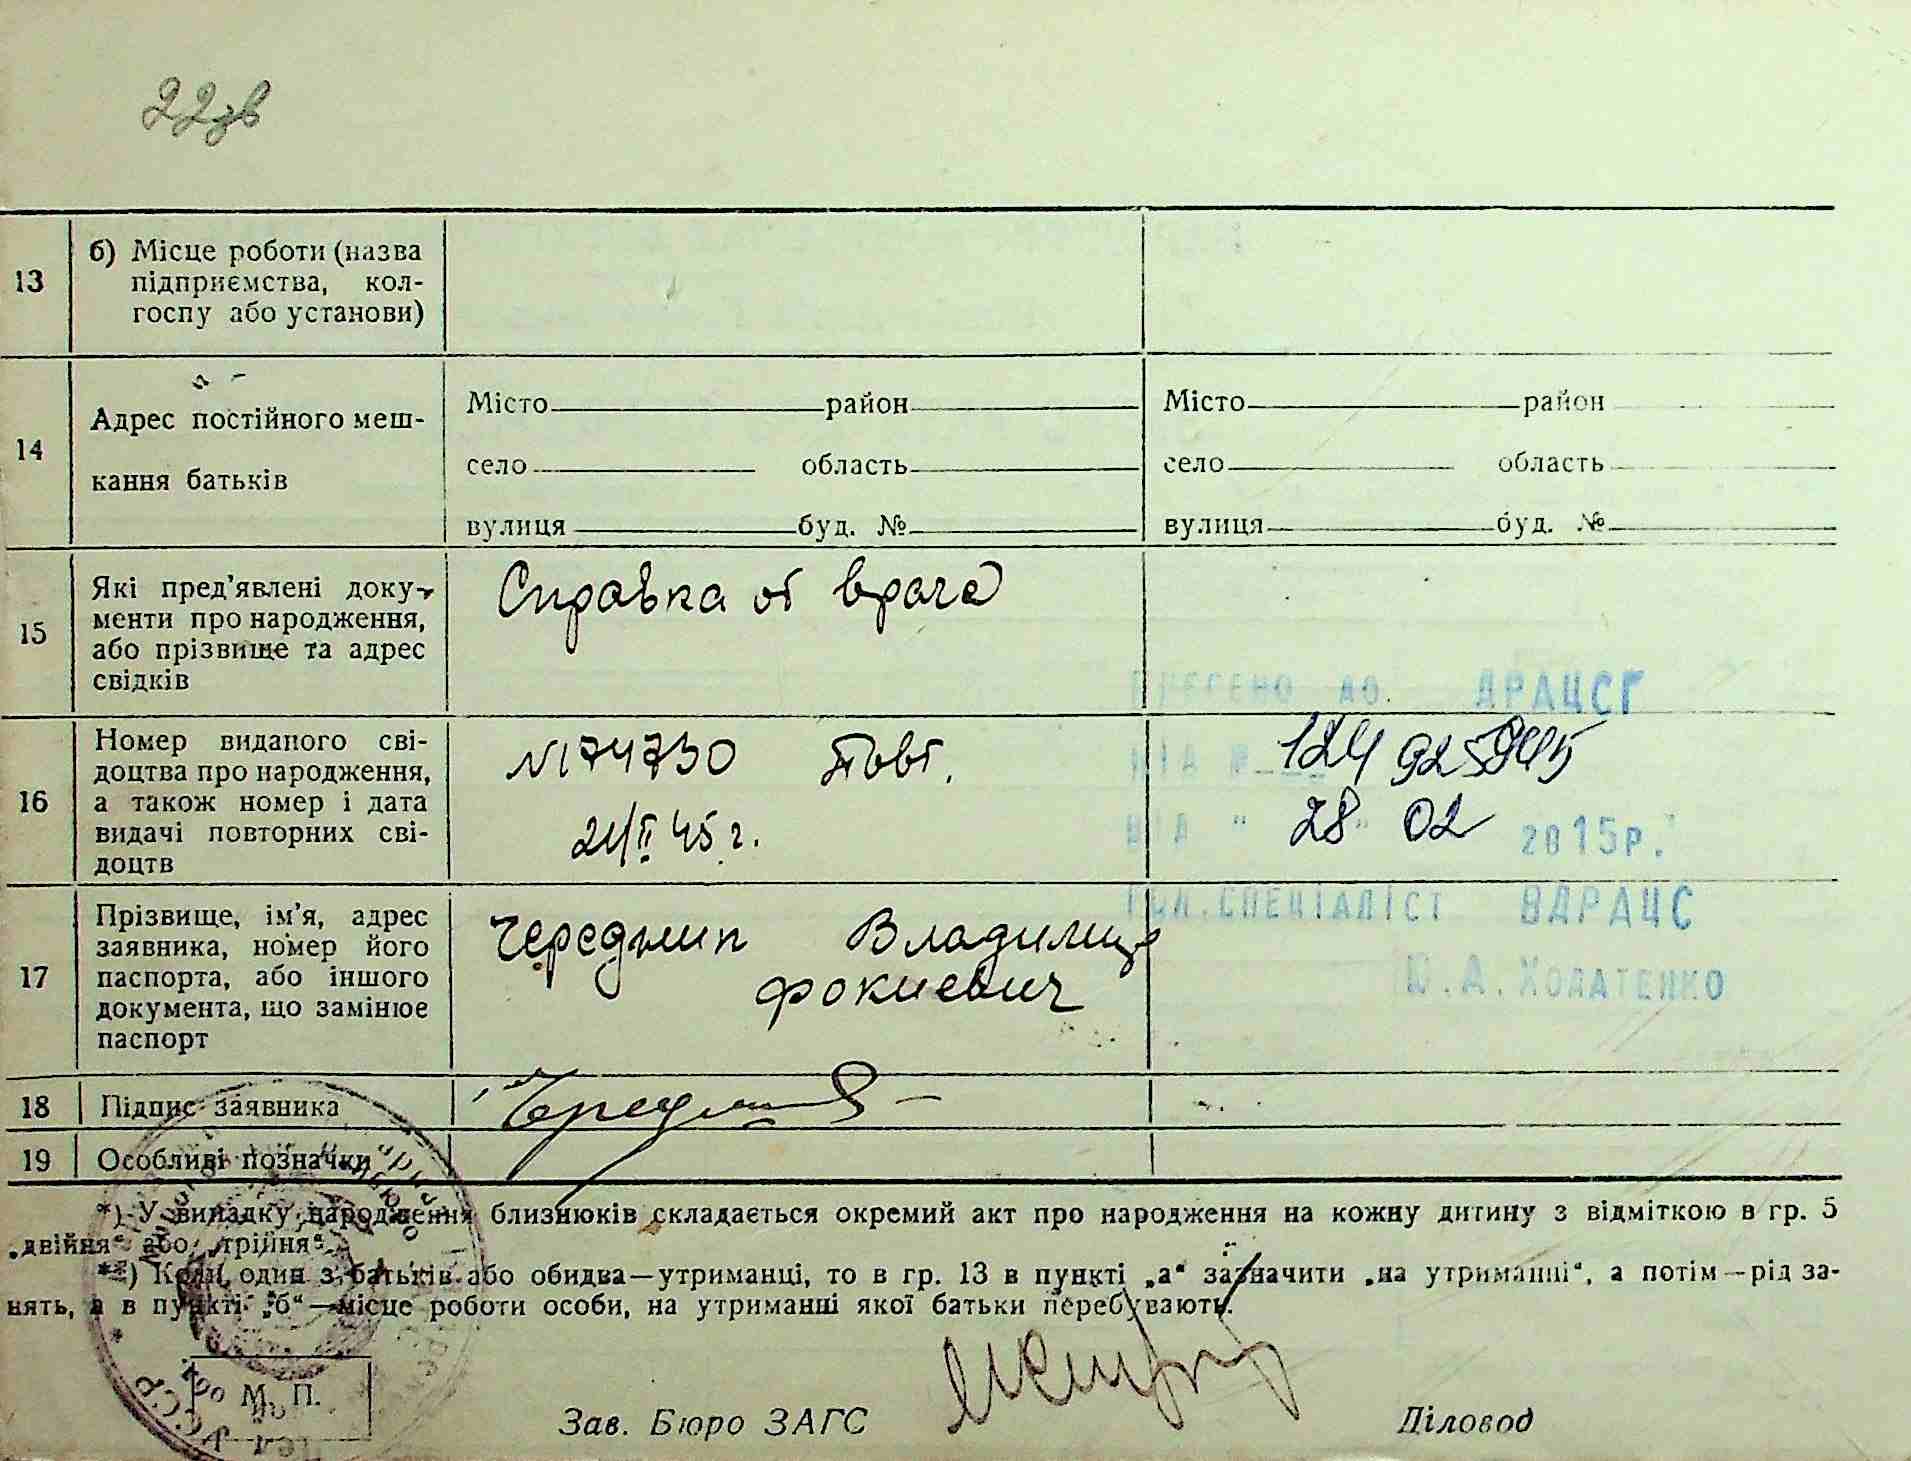 22зв
13
б) Місце роботи (назва
підприємства, кол-
госпу або установи)
14
Адрес постійного меш-
кання батьків
Місто район
село область
вулиця буд. №
Місто район
село область
вулиця буд. №
15
Які пред'явлені доку-
менти про народження,
або прізвище та адрес
свідків
Справка от врача
16
Номер виданого сві-
доцтва про народження,
а також номер і дата
видачі повторних сві-
доцтв
N174730 Повт.
21/II 45 г.
ВНЕСЕНО ДО ДРАЦСГ
№
28 02 2015р.
ГОЛ.СПЕЦІАЛІСТ ВДРАЦС
Ю.А.ХОДАТЕНКО
17
Прізвище, ім'я, адрес
заявника, номер його
паспорта, або іншого
документа, що замінює
паспорт
Чередник Владимир
Фокиевич
18
Підпис заявника
19
Особливі позначки
*) У випадку народження близнюків складається окремий акт про народження на кожну дитину з відміткою в гр. 5
„двійня“ або „трійня“.
**) Коли один з батьків або обидва—утриманці, то в гр. 13 в пункті „а“ зазначити „на утриманні“, а потім—рід за-
нять, а в пункті „б“—місце роботи особи, на утриманні якої батьки перебувають.
М. П.
УССР
Зав. Бюро ЗАГС
Діловод